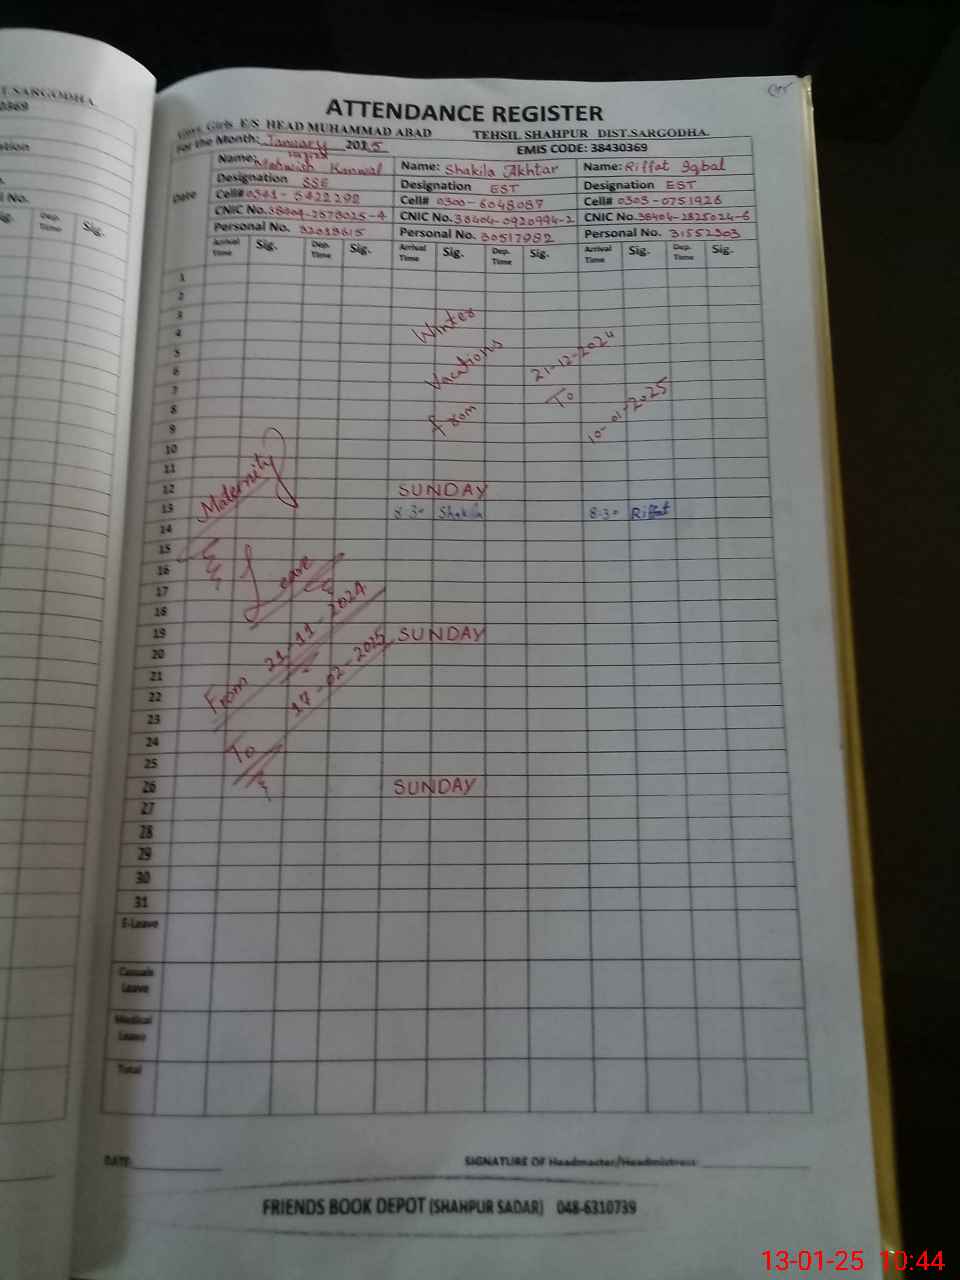 T.SARGODHA.
0369
ation
l No.
Dep. Time Sig.
ATTENDANCE REGISTER
Govt. Girls E/S HEAD MUHAMMAD ABAD TEHSIL SHAHPUR DIST.SARGODHA.
For the Month: January 2025 EMIS CODE: 38430369
Date
Name: Mahwish Kanwal
Designation SSE
Cell# 0341-5422292
CNIC No. 38404-2578025-4
Personal No. 32038615
Name: Shakila Akhtar
Designation EST
Cell# 0300-6048087
CNIC No. 38404-0920994-2
Personal No. 30517982
Name: Riffat Iqbal
Designation EST
Cell# 0303-0751926
CNIC No. 38404-2825024-6
Personal No. 31552303
Arrival Time Sig. Dep. Time Sig. Arrival Time Sig. Dep. Time Sig. Arrival Time Sig. Dep. Time Sig.
1
2
3
4
5
6
7
8
9
10
11
12 SUNDAY
13 8:30 Shakila 8:30 Riffat
14
15
16
17
18
19 SUNDAY
20
21
22
23
24
25
26 SUNDAY
27
28
29
30
31
Winter
Vacations
From
21-12-2024
To
10-01-2025
Maternity
Leave
From 21-11-2024
To 17-02-2025
E-Leave
Casuals Leave
Medical Leave
Total
DATE: SIGNATURE OF Headmaster/Headmistress
FRIENDS BOOK DEPOT (SHAHPUR SADAR) 048-6310739
13-01-25 10:44